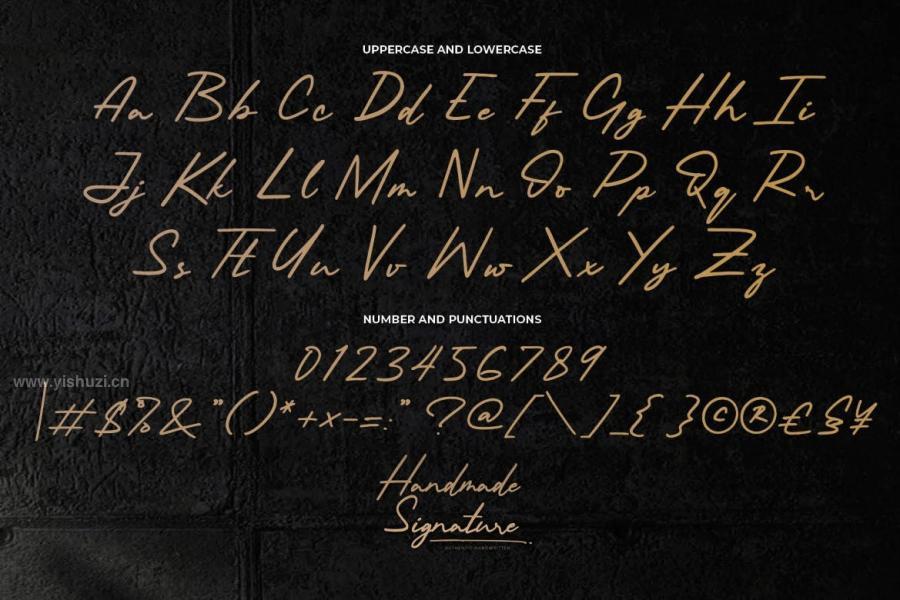 UPPERCASE AND LOWERCASE
Aa Bb Cc Dd Ee Ff Gg Hh Ii
Jj Kk Ll Mm Nn Oo Pp Qq Rr
Ss Tt Uu Vv Ww Xx Yy Zz
NUMBER AND PUNCTUATIONS
0123456789
www.yishuzi.cn
|#$%&"()*+x-=:"?@[\]_{}©®£§¥
Handmade
Signature
AUTHENTIC HANDWRITTEN